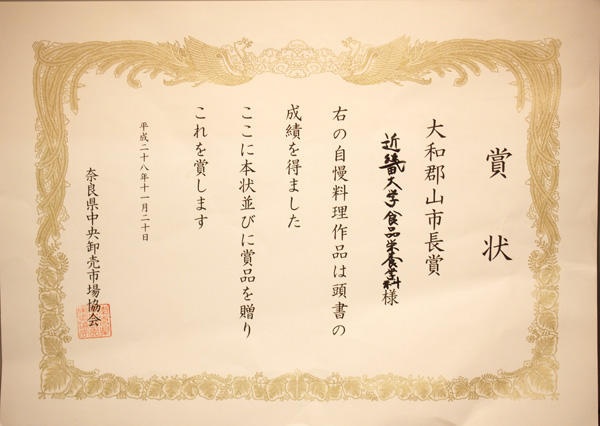 賞状
大和郡山市長賞
近畿大学食品栄養学科様
右の自慢料理作品は頭書の
成績を得ました
ここに本状並びに賞品を贈り
これを賞します
平成二十八年十一月二十日
奈良県中央卸売市場協会